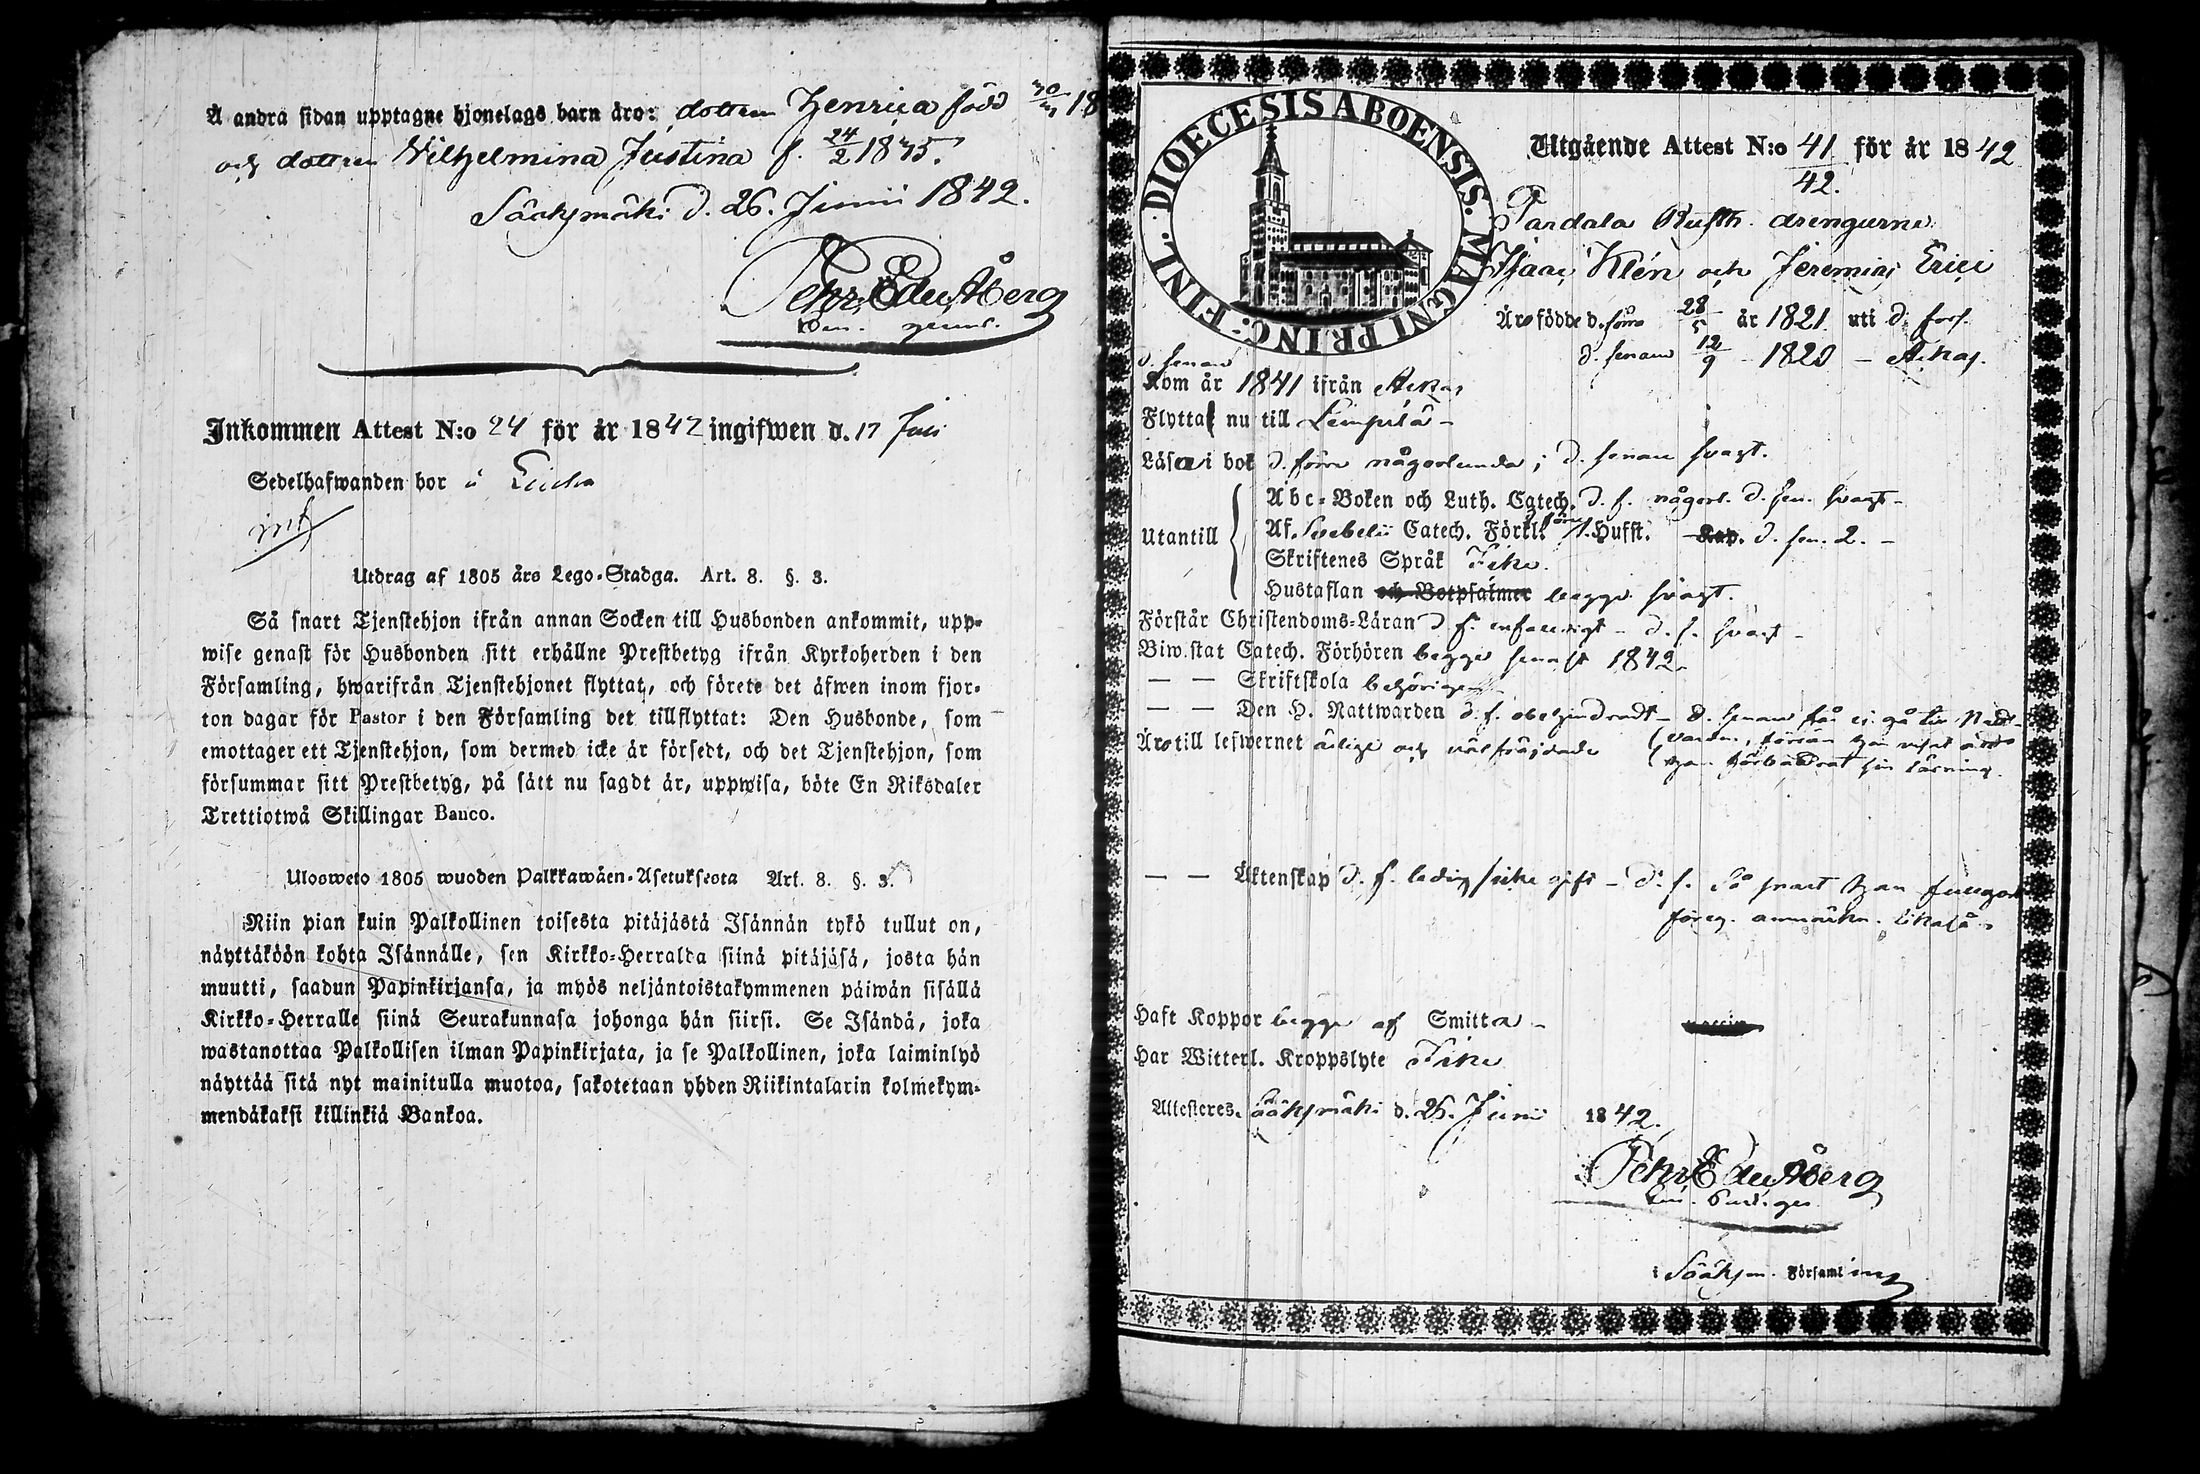 Å andra sidan upptagne hjonelags barn äro: dottren Henrica född 30/11 18
och dottren Wilhelmina Justina f. 24/2 1835.
Sääksmäki d. 26. Junii 1842.
Pehr Edv. Åberg
Inkommen Attest N:o 24 för år 1842 ingifwen d. 17 Juli
Sedelhafwanden bor i
Utdrag af 1805 års Lego-Stadga. Art. 8. §. 3.
Så snart Tjenstehjon ifrån annan Socken till Husbonden ankommit, upp-
wise genast för Husbonden sitt erhållne Prestbetyg ifrån Kyrkoherden i den
Församling, hwarifrån Tjenstehjonet flyttat, och förete det äfwen inom fjor-
ton dagar för Pastor i den Församling det tillflyttat: Den Husbonde, som
emottager ett Tjenstehjon, som dermed icke är försedt, och det Tjenstehjon, som
försummar sitt Prestbetyg, på sätt nu sagdt är, uppwisa, böte En Riksdaler
Trettiotwå Skillingar Banco.
Ulosweto 1805 wuoden Palkkawäen-Asetuksesta Art. 8. §. 3.
Niin pian kuin Palkollinen toisesta pitäjästä Isännän tykö tullut on,
näyttäköön kohta Isännälle, sen Kirkko-Herralda siinä pitäjäsä, josta hän
muutti, saadun Papinkirjansa, ja myös neljäntoistakymmenen päiwän sisällä
Kirkko-Herralle siinä Seurakunnasa johonga hän siirsi. Se Isändä, joka
wastanottaa Palkollisen ilman Papinkirjata, ja se Palkollinen, joka laiminlyö
näyttää sitä nyt mainitulla muotoa, sakotetaan yhden Riikintalarin kolmekym-
mendäkaksi killinkiä Bankoa.
DIOECESIS ABOENSIS. MAGNI PRINC: FINL.
Utgående Attest N:o 41 för år 1842
42.
Pardala Rusth. drengarne
Isaac Klén och Jeremias Erici
Äro födde d. förre 28/5 år 1821 uti d. förs.
d. senare 12/9 - 1820 - Akas.
d. senare
Kom år 1841 ifrån Akas
Flytta nu till Lempälä -
Läsa i bok d. förre någorlunda; d. senare svagt.
Utantill
Abc-Boken och Luth. Catech. d. f. någorl. d. sen. svagt -
Af Svebelii Catech. Förkl. förre 1. Hufst. d. sen. 2. -
Skriftenes Språk Icke.
Hustaflan och Botpsalmer begge svagt.
Förstår Christendoms-Läran d. f. enfaldigt - d. s. svagt -
Biw.stat Catech. Förhören begge senast 1842
— — Skriftskola behörigen
— — Den H. Nattwarden d. f. obehindradt - d. senare får ej gå till Natt-
varden, förrän han visat att
han förbättrat sin läsning.
Äro till lefwernet ärlige och välfräjdade
— — Äktenskap d. f. ledig / icke gift - d. s. så snart han fullgjort
föreg. anmärkn. likaså
Haft Koppor begge af Smitta -
Har Witterl. Kroppslyte Icke
Attesteres. Sääksmäki d. 26. Junii 1842.
Pehr Edv. Åberg
i Sääksm. Församling